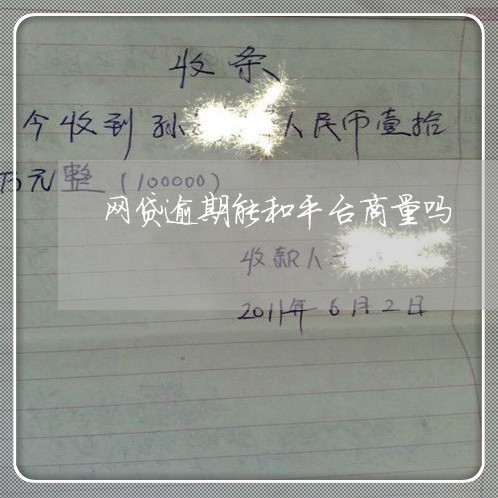 收条
今收到孙 人民币壹拾
万元整(100000)
网贷逾期能和平台商量吗
收款人
2011年6月2日